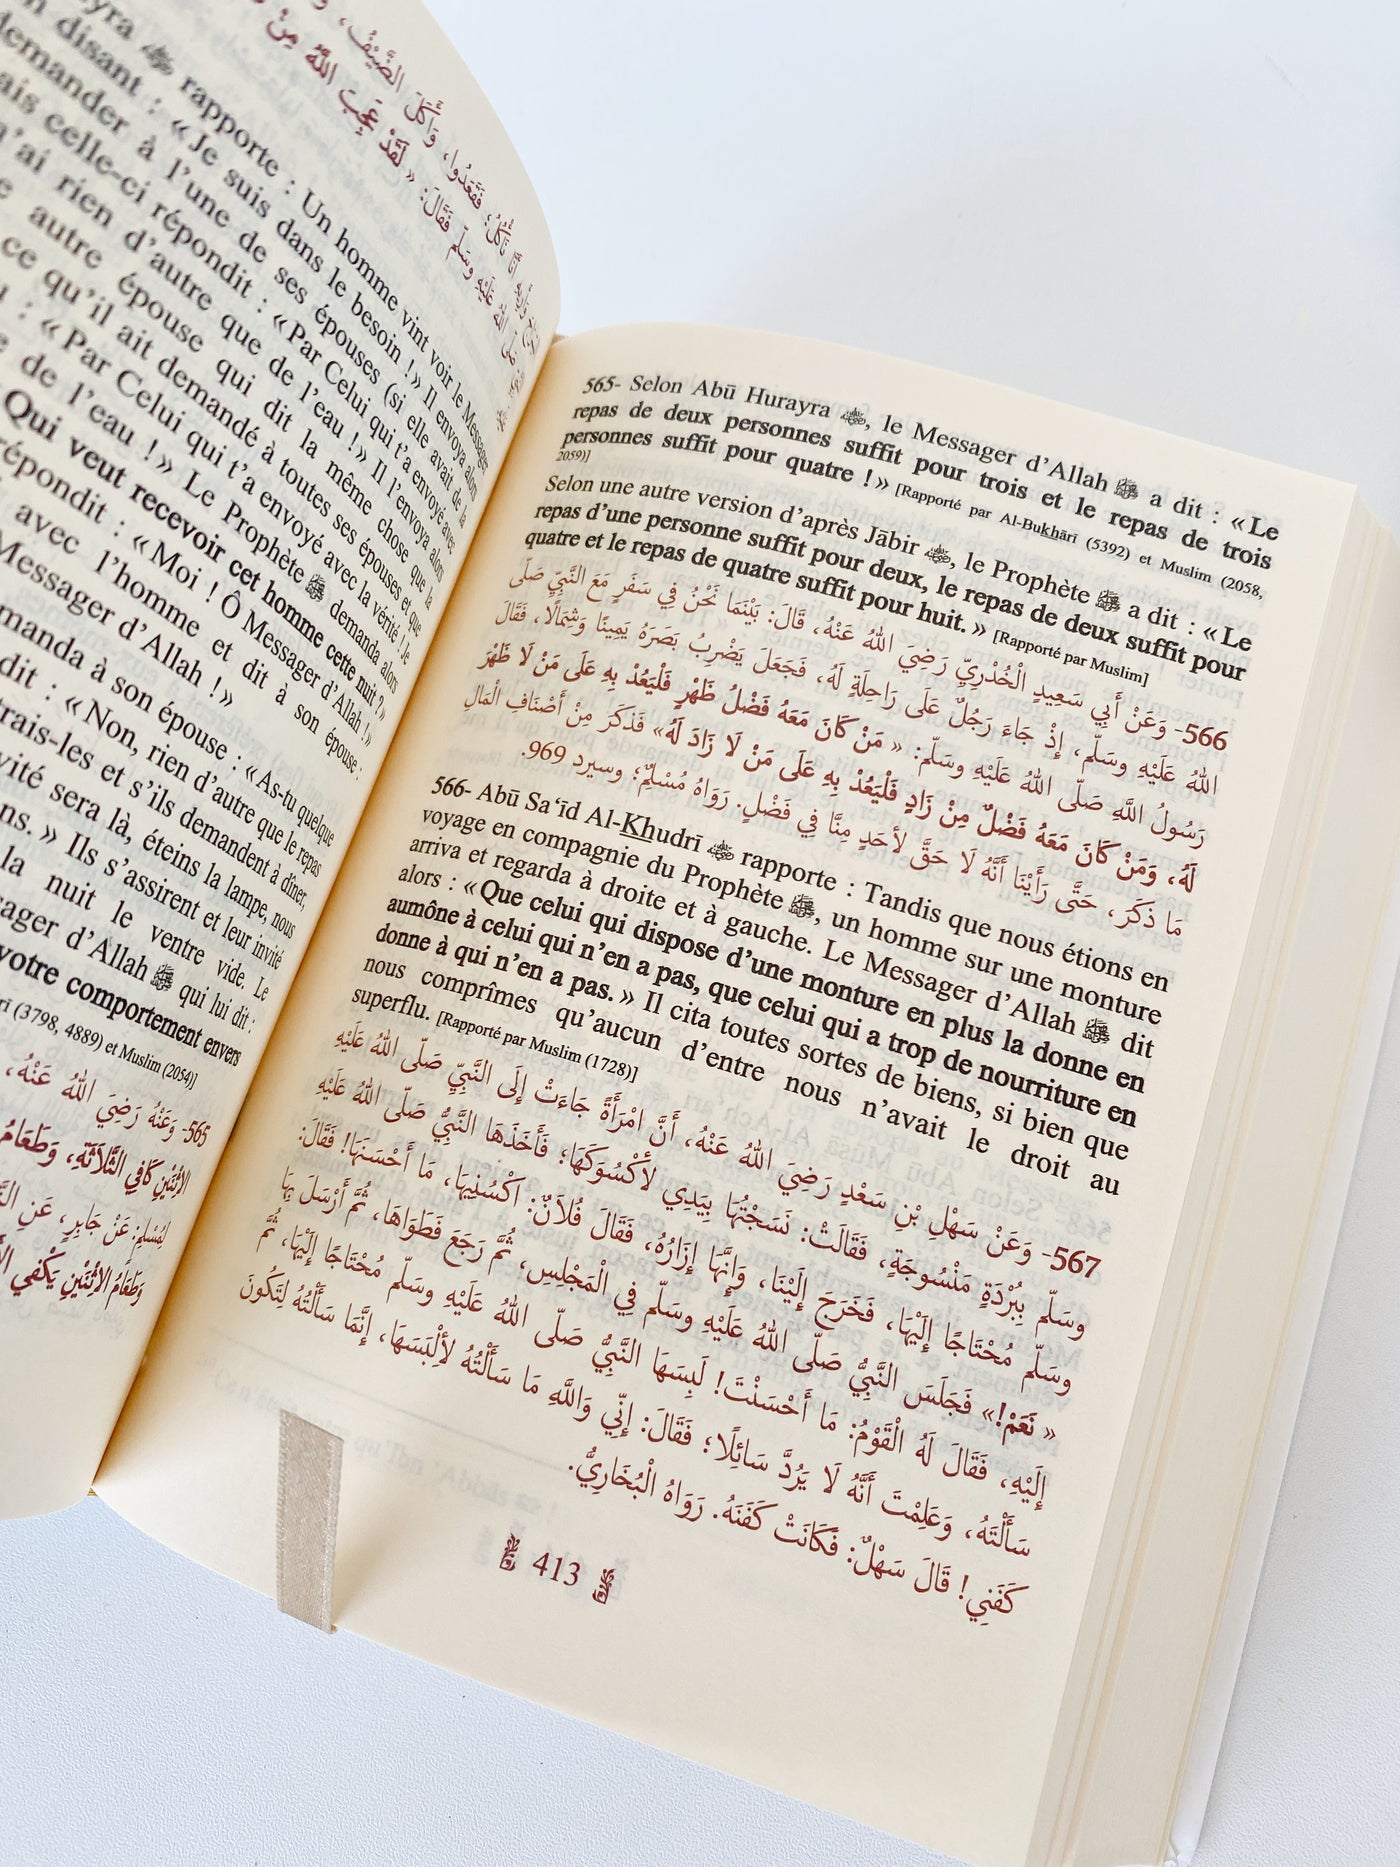 وَأَكَلَ الضَّيْفُ،
« لَقَدْ عَجِبَ اللهُ مِنْ
rapporte : Un homme vint voir le Messager
disant : « Je suis dans le besoin !» Il envoya alors
demander à l'une de ses épouses (si elle avait de la
ais celle-ci répondit : « Par Celui qui t'a envoyé avec
'ai rien d'autre que de l'eau !» Il l'envoya alors
autre épouse qui dit la même chose, que la
ce qu'il ait demandé à toutes ses épouses et que
: « Par Celui qui t'a envoyé avec la vérité ! Je
de l'eau !» Le Prophète ﷺ demanda alors
Qui veut recevoir cet homme cette nuit ?»
répondit : « Moi ! Ô Messager d'Allah !»
avec l'homme et dit à son épouse :
Messager d'Allah !»
manda à son épouse : « As-tu quelque
dit : « Non, rien d'autre que le repas
trais-les et s'ils demandent à dîner,
vité sera là, éteins la lampe, nous
ns. » Ils s'assirent et leur invité
la nuit le ventre vide. Le
ager d'Allah ﷺ qui lui dit :
votre comportement envers
(3798, 4889) et Muslim (2054)]
565- وَعَنْهُ رَضِيَ اللهُ عَنْهُ،
الاِثْنَيْنِ كَافِي الثَّلَاثَةِ، وَطَعَامُ
لِمُسْلِمٍ: عَنْ جَابِرٍ، عَنِ
وَطَعَامُ الاِثْنَيْنِ يَكْفِي
565- Selon Abū Hurayra, le Messager d'Allah ﷺ a dit : « Le
repas de deux personnes suffit pour trois et le repas de trois
personnes suffit pour quatre !» [Rapporté par Al-Bukhārī (5392) et Muslim (2058,
2059)]
Selon une autre version d'après Jābir, le Prophète ﷺ a dit : « Le
repas d'une personne suffit pour deux, le repas de deux suffit pour
quatre et le repas de quatre suffit pour huit. » [Rapporté par Muslim]
566- وَعَنْ أَبِي سَعِيدٍ الْخُدْرِيِّ رَضِيَ اللهُ عَنْهُ، قَالَ: بَيْنَمَا نَحْنُ فِي سَفَرٍ مَعَ النَّبِيِّ صَلَّى
اللهُ عَلَيْهِ وَسَلَّم، إِذْ جَاءَ رَجُلٌ عَلَى رَاحِلَةٍ لَهُ، فَجَعَلَ يَضْرِبُ بَصَرَهُ يَمِينًا وَشِمَالًا، فَقَالَ
رَسُولُ اللَّهِ صَلَّى اللهُ عَلَيْهِ وَسَلَّم: « مَنْ كَانَ مَعَهُ فَضْلُ ظَهْرٍ فَلْيَعُدْ بِهِ عَلَى مَنْ لَا ظَهْرَ
لَهُ، وَمَنْ كَانَ مَعَهُ فَضْلٌ مِنْ زَادٍ فَلْيَعُدْ بِهِ عَلَى مَنْ لَا زَادَ لَهُ» فَذَكَرَ مِنْ أَصْنَافِ الْمَالِ
مَا ذَكَرَ، حَتَّى رَأَيْنَا أَنَّهُ لَا حَقَّ لأَحَدٍ مِنَّا فِي فَضْلٍ. رَوَاهُ مُسْلِمٌ؛ وسيرد 969.
566- Abū Sa'īd Al-Khudrī rapporte : Tandis que nous étions en
voyage en compagnie du Prophète ﷺ, un homme sur une monture
arriva et regarda à droite et à gauche. Le Messager d'Allah ﷺ dit
alors : « Que celui qui dispose d'une monture en plus la donne en
aumône à celui qui n'en a pas, que celui qui a trop de nourriture en
donne à qui n'en a pas. » Il cita toutes sortes de biens, si bien que
nous comprîmes qu'aucun d'entre nous n'avait le droit au
superflu. [Rapporté par Muslim (1728)]
567- وَعَنْ سَهْلِ بْنِ سَعْدٍ رَضِيَ اللهُ عَنْهُ، أَنَّ امْرَأَةً جَاءَتْ إِلَى النَّبِيِّ صَلَّى اللهُ عَلَيْهِ
وَسَلَّم بِبُرْدَةٍ مَنْسُوجَةٍ، فَقَالَتْ: نَسَجْتُهَا بِيَدِي لأَكْسُوَكَهَا؛ فَأَخَذَهَا النَّبِيُّ صَلَّى اللهُ عَلَيْهِ
وَسَلَّم مُحْتَاجًا إِلَيْهَا، فَخَرَجَ إِلَيْنَا، وَإِنَّهَا إِزَارُهُ، فَقَالَ فُلَانٌ: اكْسُنِيهَا، مَا أَحْسَنَهَا! فَقَالَ:
« نَعَمْ!» فَجَلَسَ النَّبِيُّ صَلَّى اللهُ عَلَيْهِ وَسَلَّم فِي الْمَجْلِسِ، ثُمَّ رَجَعَ فَطَوَاهَا، ثُمَّ أَرْسَلَ بِهَا
إِلَيْهِ، فَقَالَ لَهُ الْقَوْمُ: مَا أَحْسَنْتَ! لَبِسَهَا النَّبِيُّ صَلَّى اللهُ عَلَيْهِ وَسَلَّم مُحْتَاجًا إِلَيْهَا، ثُمَّ
سَأَلْتَهُ، وَعَلِمْتَ أَنَّهُ لَا يَرُدَّ سَائِلًا؛ فَقَالَ: إِنِّي وَاللَّهِ مَا سَأَلْتُهُ لأَلْبَسَهَا، إِنَّمَا سَأَلْتُهُ لِتَكُونَ
كَفَنِي! قَالَ سَهْلٌ: فَكَانَتْ كَفَنَهُ. رَوَاهُ الْبُخَارِيُّ.
413